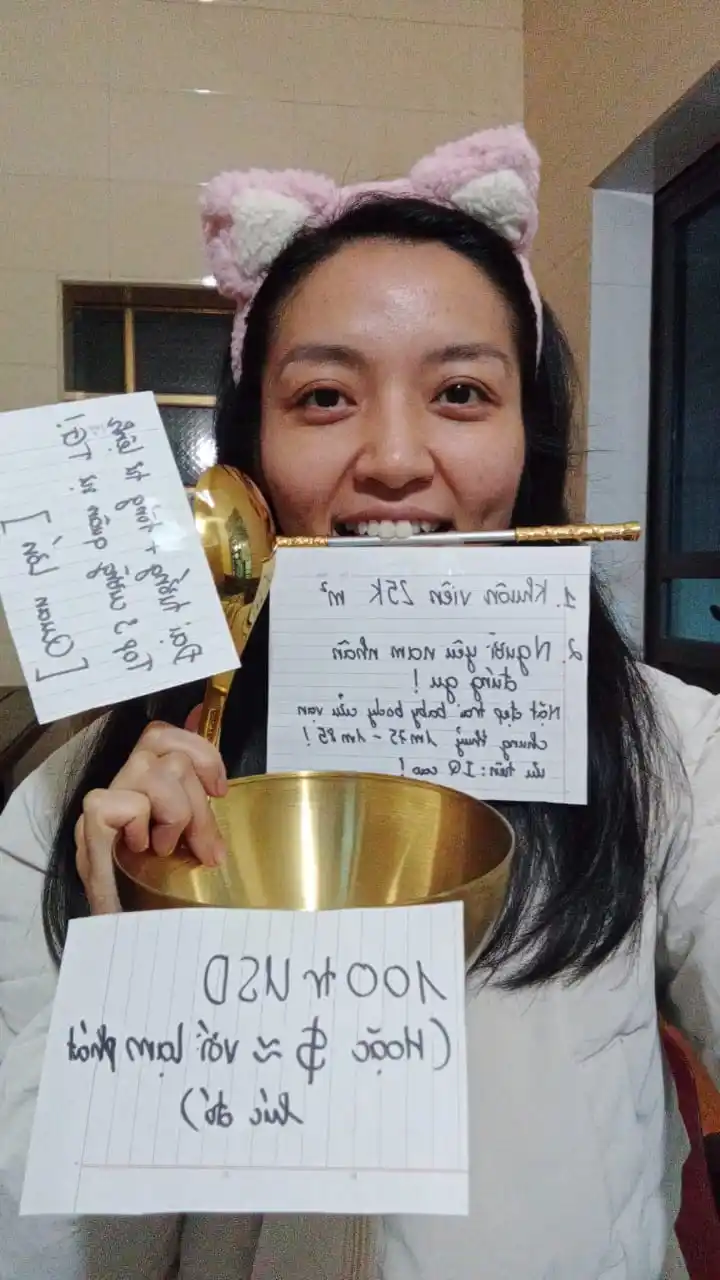 Đại tướng + tổng tư lệnh
Top 2 tướng quân sự TG!
[Quan lớn]
1. Khuôn viên 25K m²
2. Người yêu nam nhân
đúng gu !
Mặt đẹp trai baby body cửu vạn
chung thuỷ 1m75 - 1m85 !
ưu tiên: IQ cao !
100 tr USD
(Hoặc $ ≈ với lạm phát
lúc đó)